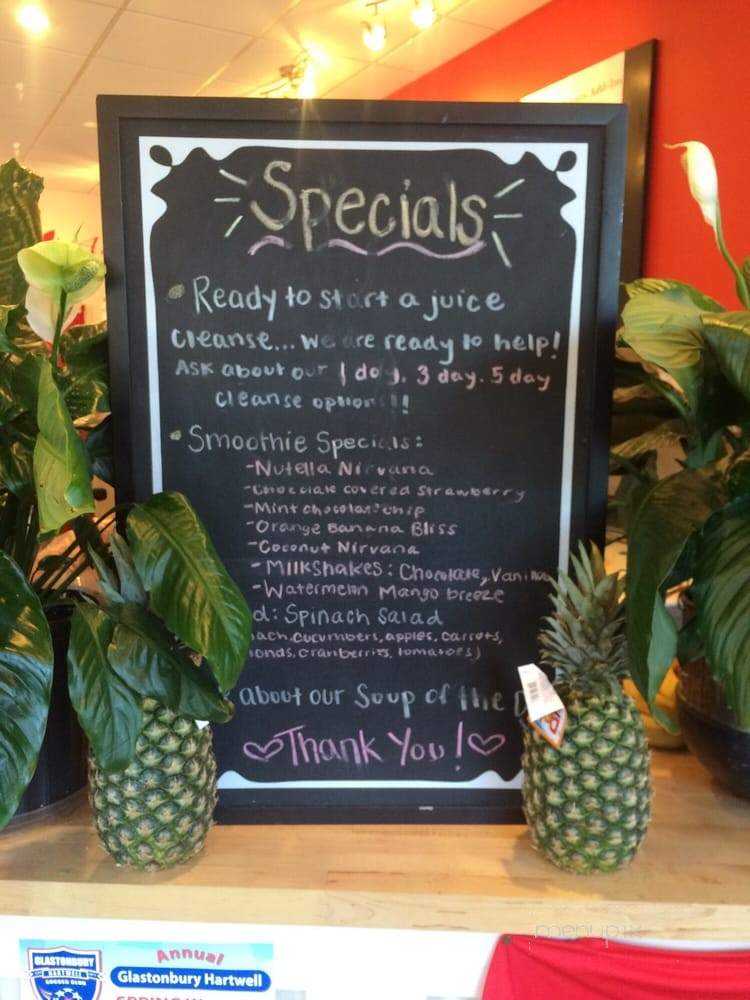 Specials
Ready to start a juice
cleanse... we are ready to help!
ASK about our 1 day, 3 day, 5 day
cleanse options!!
Smoothie Specials:
-Nutella Nirvana
-Chocolate covered Strawberry
-Mint chocolate chip
-Orange Banana Bliss
-Coconut Nirvana
-Milkshakes: Chocolate, Vanilla
-Watermelon Mango breeze
d: Spinach Salad
ach, cucumbers, apples, carrots,
onds, cranberries, tomatoes)
about our Soup of the D
Thank You!
GLASTONBURY
HARTWELL
SOCCER CLUB
Annual
Glastonbury Hartwell
menupix